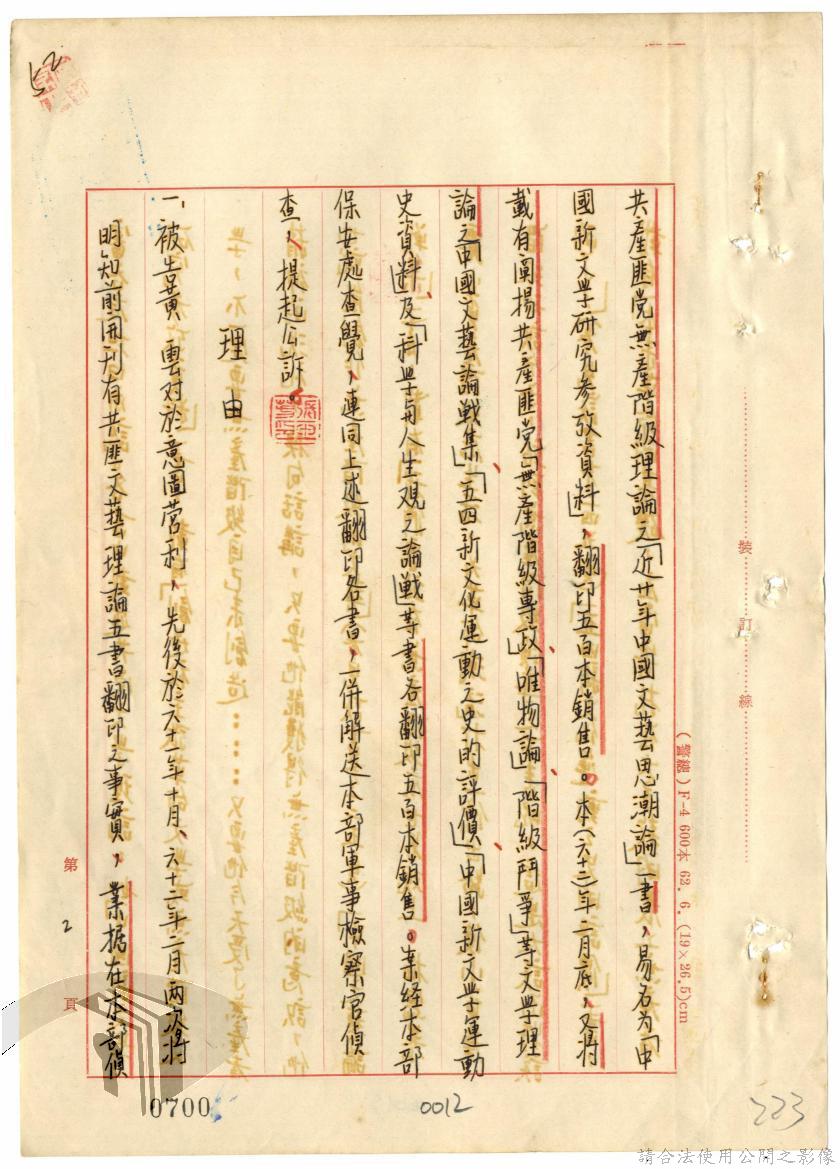 共產匪党無產階級理論之「近廿年中國文藝思潮論」一書，易名為「中
國新文學研究參攷資料」，翻印五百本銷售。本（六十三）年二月底，又將
載有闡揚共產匪党「無產階級專政」「唯物論」「階級鬥爭」等文學理
論之「中國文藝論戰集」、「五四新文化運動之史的評價」、「中國新文學運動
史資料」、及「科學與人生观之論战」等書各翻印五百本銷售。案経本部
保安處查覺，連同上述翻印各書，一併解送本部軍事檢察官偵
查，提起公訴。
理由
一、被告黃雲对於意圖营利，先後於六十一年十月、六十三年二月兩次將
明知前開刊有共匪文藝理論五書翻印之事實，業据在本部偵
裝訂線
（警總）F-4 600本 62. 6. (19×26.5)cm
第2頁
52
0700
0012
223
請合法使用公開之影像